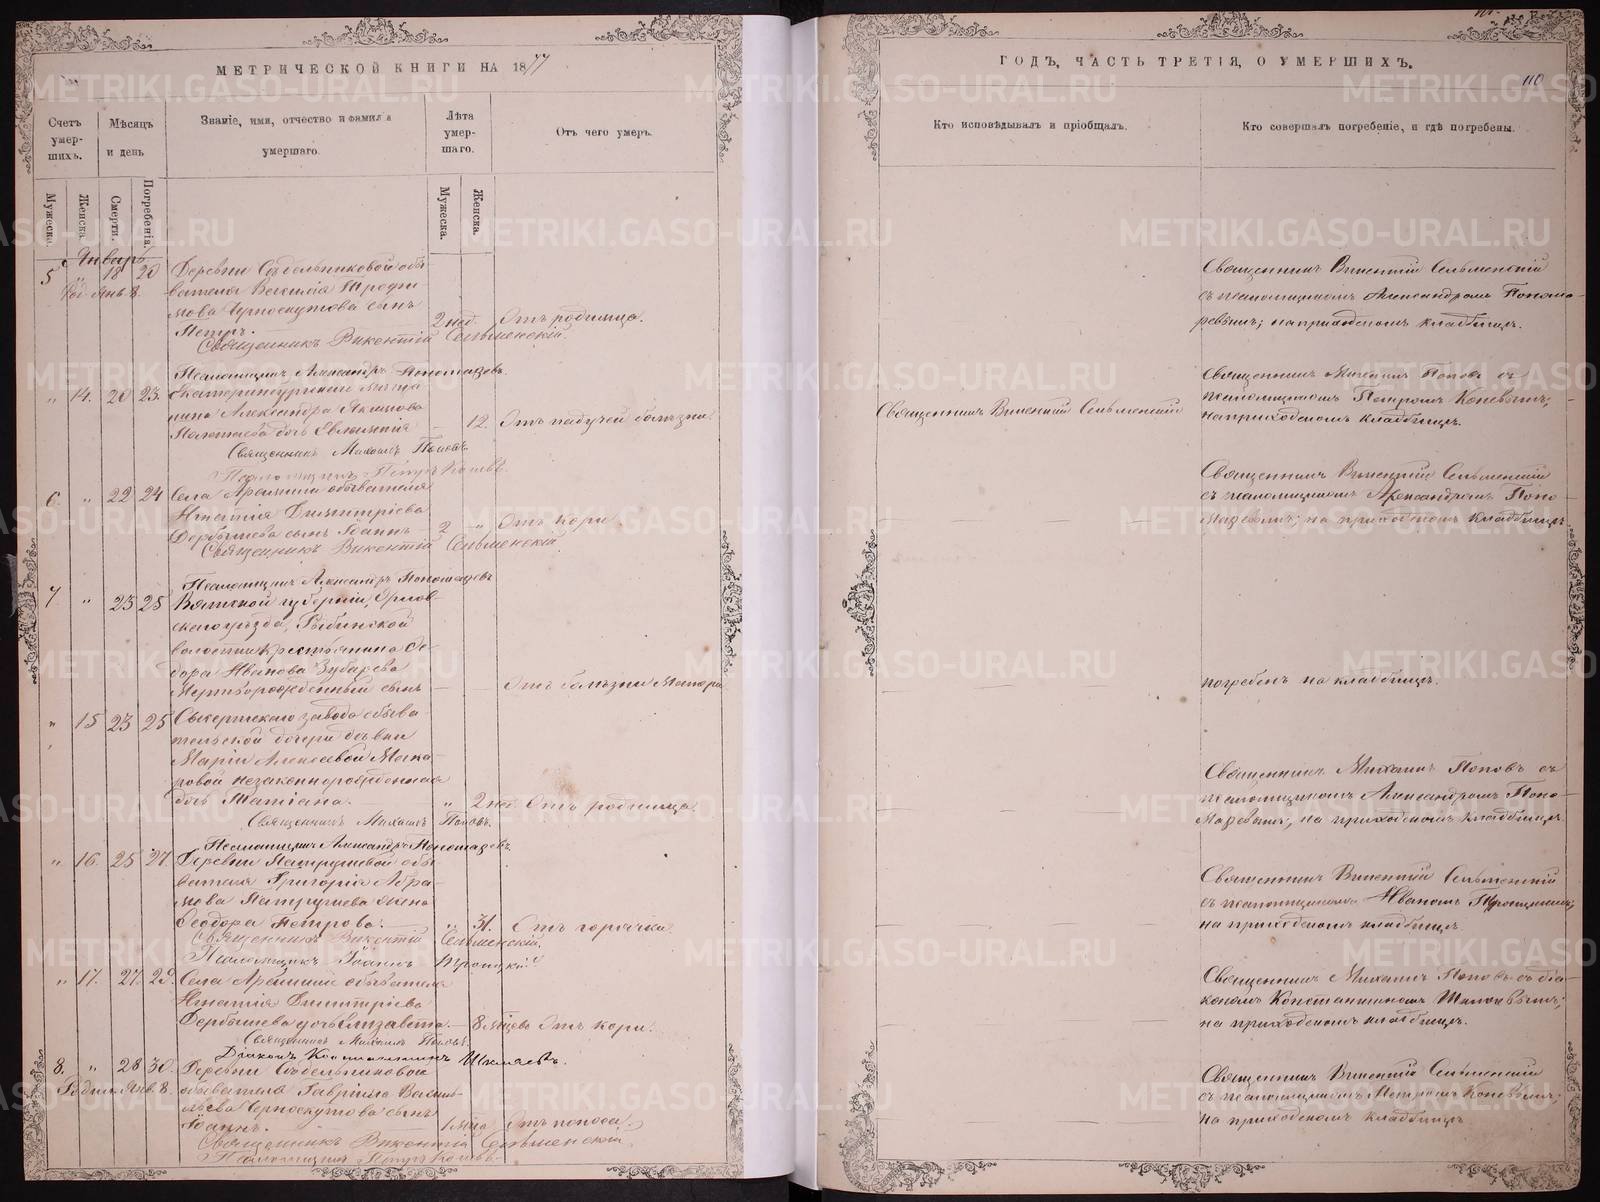 МЕТРИЧЕСКОЙ КНИГИ НА 1877
Счетъ умершихъ.
Мѣсяцъ и день
Званіе, имя, отчество и фамилія умершаго.
Лѣта умершаго.
Отъ чего умеръ.
Мужеска.
Женска.
Смерти.
Погребенія.
Мужеска.
Женска.
Январь
5 " 18 20 Деревни Седельниковой обы-
Род. Янв. 8. вателя Василія Трофи-
мова Черноскутова сынъ
Петръ. 2 нед. Отъ родимца.
Священникъ Викентій Сельменскій.
Псаломщикъ Александръ Пономаревъ.
" 14. 20 23. Екатеринбургскаго мѣща-
нина Александра
дочь Евлампія 12. Отъ падучей болѣзни.
Священникъ Михаилъ Поповъ.
Псаломщикъ Петръ Коневъ.
6 " 22 24 Села Арамили обывателя
Игнатія Димитріева
Дербышева сынъ Іоаннъ 2 " Отъ кори
Священникъ Викентій Сельменскій.
Псаломщикъ Александръ Пономаревъ
7 " 23 25 Вятской губерніи, Орлов-
скаго уѣзда,
волости крестьянина Ѳе-
дора Иванова Зубарева
Мертворожденный сынъ Отъ болѣзни Матери
" 15 23 25 Сысертскаго завода обыва-
тельской дочери дѣвки
Маріи Алексѣевой Мака-
ровой незаконнорожденная
дочь Татіана. " 2 нед. Отъ родимца
Священникъ Михаилъ Поповъ.
Псаломщикъ Александръ Пономаревъ.
" 16 25 27. Деревни Патрушевой обы-
вателя Григорія Абра-
мова Патрушева жена
Ѳеодора Петрова. " 31. Отъ горячки.
Священникъ Викентій Сельменскій.
Псаломщикъ Іоаннъ Троицкій
" 17. 27. 29. Села Арамили обывателя
Игнатія Димитріева
Дербышева дочь Елизавета. 8 мѣсяцевъ Отъ кори.
Священникъ Михаилъ Поповъ.
Діаконъ Константинъ
8. " 28 30. Деревни Седельниковой
Родил. Янв. 8. обывателя Гавріила Василь-
ева Черноскутова сынъ
Іоаннъ. 1 мѣс. Отъ поноса.
Священникъ Викентій Сельменскій.
Псаломщикъ Петръ Коневъ.
ГОДЪ, ЧАСТЬ ТРЕТІЯ, О УМЕРШИХЪ.
110
Кто исповѣдывалъ и пріобщалъ.
Кто совершалъ погребеніе, и гдѣ погребены.
Священникъ Викентій Сельменскій
съ псаломщикомъ Александромъ Понома-
ревымъ; на приходскомъ кладбищѣ.
Священникъ Викентій Сельменскій
Священникъ Михаилъ Поповъ съ
псаломщикомъ Петромъ Коневымъ;
на приходскомъ кладбищѣ.
Священникъ Викентій Сельменскій
съ псаломщикомъ Александромъ Поно-
маревымъ; на приходскомъ кладбищѣ
погребенъ на кладбищѣ.
Священникъ Михаилъ Поповъ съ
псаломщикомъ Александромъ Поно-
маревымъ; на приходскомъ кладбищѣ.
Священникъ Викентій Сельменскій
съ псаломщикомъ Иваномъ Троицкимъ;
на приходскомъ кладбищѣ.
Священникъ Михаилъ Поповъ съ діа-
кономъ Константиномъ
на приходскомъ кладбищѣ.
Священникъ Викентій Сельменскій
съ псаломщикомъ Петромъ Коневымъ;
на приходскомъ кладбищѣ
METRIKI.GASO-URAL.RU